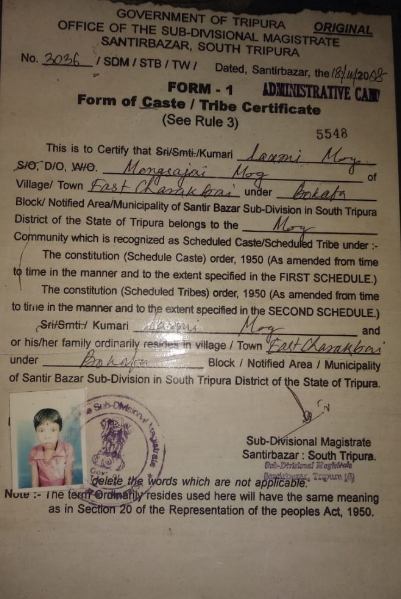 GOVERNMENT OF TRIPURA ORIGINAL
OFFICE OF THE SUB-DIVISIONAL MAGISTRATE
SANTIRBAZAR, SOUTH TRIPURA
No. 3036 / SDM / STB / TW / Dated, Santirbazar, the 18/11/2008
FORM - 1 ADMINISTRATIVE CAMP
Form of Caste / Tribe Certificate
(See Rule 3)
5548
This is to Certify that Sri/Smti./Kumari Laxmi Mog
S/O, D/O, W/O. Mongsajai Mog of
Village/ Town East Charakbai under Bokafa
Block/ Notified Area/Municipality of Santir Bazar Sub-Division in South Tripura
District of the State of Tripura belongs to the Mog
Community which is recognized as Scheduled Caste/Scheduled Tribe under :-
The constitution (Schedule Caste) order, 1950 (As amended from time
to time in the manner and to the extent specified in the FIRST SCHEDULE.)
The constitution (Scheduled Tribes) order, 1950 (As amended from time
to time in the manner and to the extent specified in the SECOND SCHEDULE.)
Sri/Smti:/ Kumari Laxmi Mog and
or his/her family ordinarily resides in village / Town East Charakbai
under Bokafa Block / Notified Area / Municipality
of Santir Bazar Sub-Division in South Tripura District of the State of Tripura.
Sub-Divisional Magistrate
Santirbazar : South Tripura.
Sub-Divisional Magistrate
Santirbazar, Tripura
delete the words which are not applicable.
Note :- The term Ordinarily resides used here will have the same meaning
as in Section 20 of the Representation of the peoples Act, 1950.